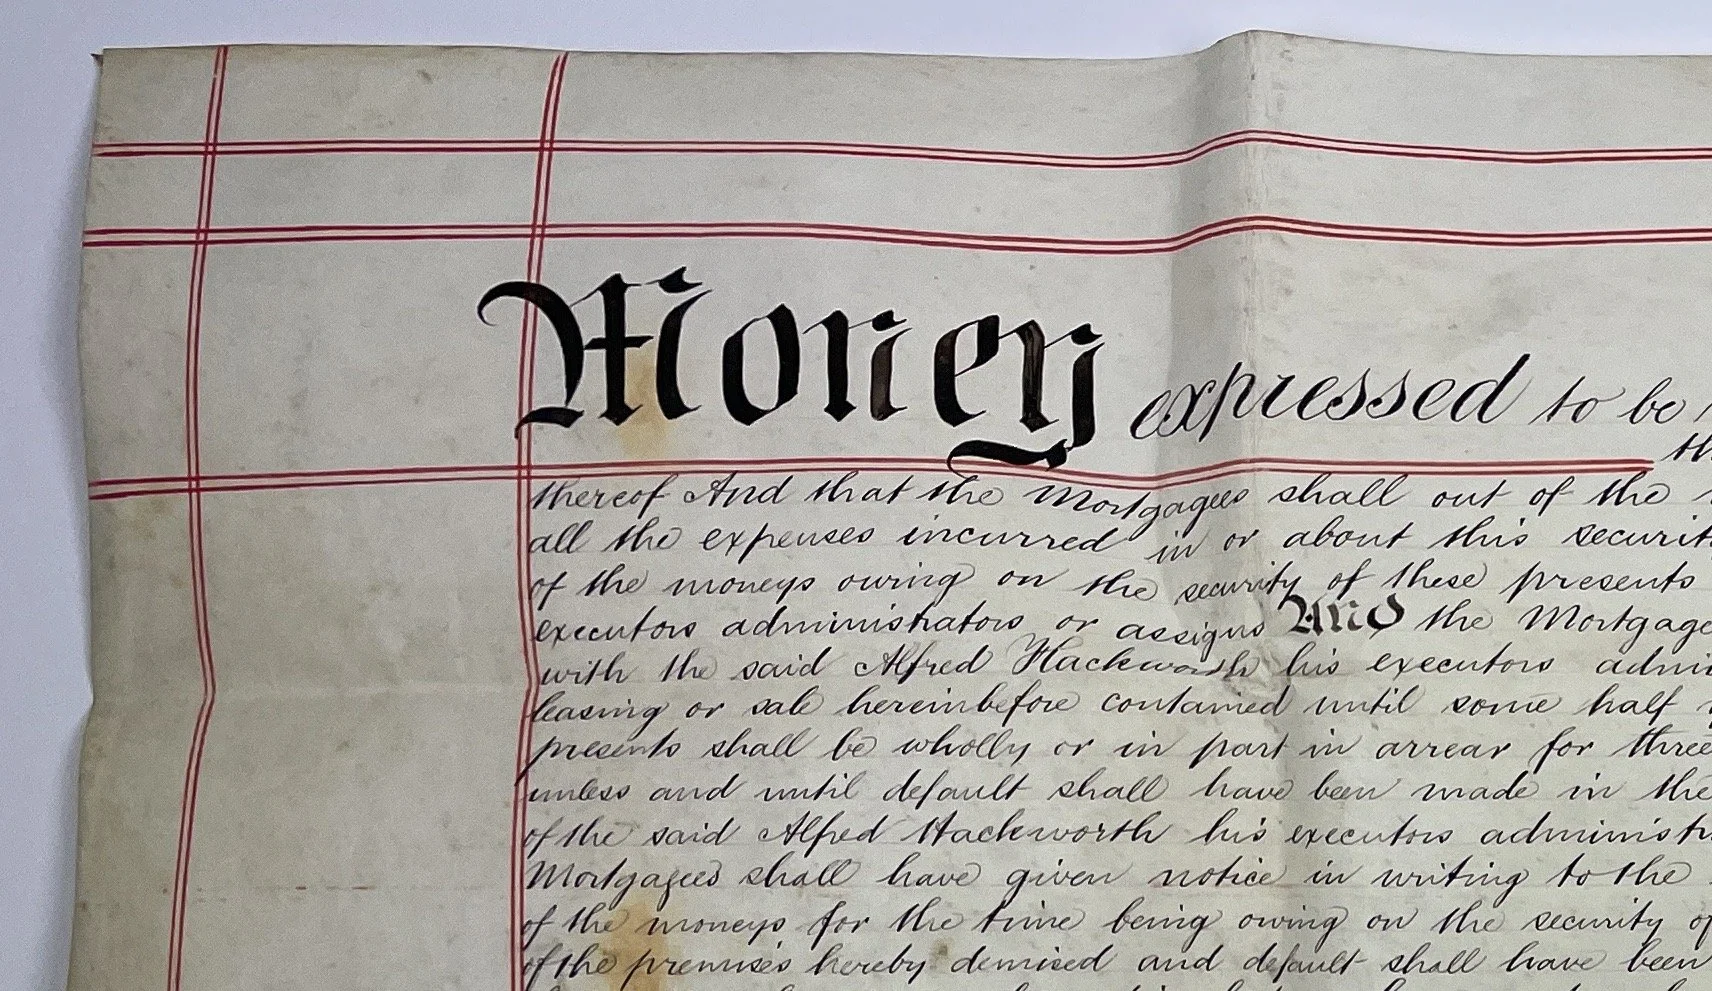 Money expressed to be
thereof And that the Mortgagees shall out of the
all the expenses incurred in or about this securit
of the moneys owing on the security of these presents
executors administrators or assigns And the Mortgage
with the said Alfred Hackworth his executors admi
leasing or sale hereinbefore contained until some half
presents shall be wholly or in part in arrear for three
unless and until default shall have been made in the
of the said Alfred Hackworth his executors administr
Mortgagees shall have given notice in writing to the
of the moneys for the time being owing on the security of
of the premises hereby demised and default shall have been